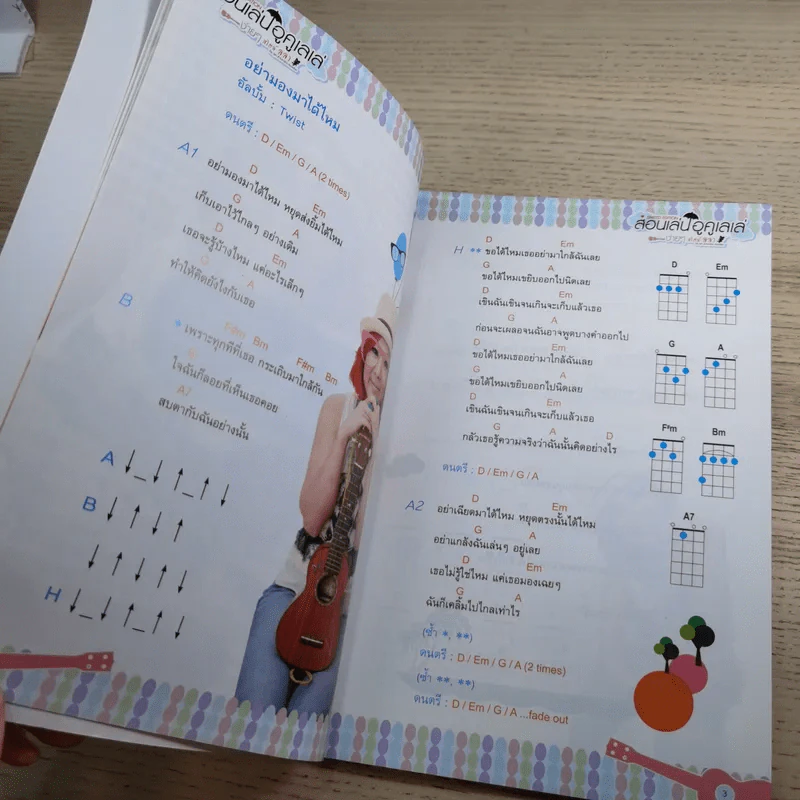 สอนเล่นอูคูเลเล่
อย่ามองมาได้ไหม
อัลบั้ม : Twist
ดนตรี : D / Em / G / A (2 times)
A1
D Em
อย่ามองมาได้ไหม หยุดส่งยิ้มได้ไหม
G A
เก็บเอาไว้ไกลๆ อย่างเดิม
D Em
เธอจะรู้บ้างไหม แค่อะไรเล็กๆ
G A
ทำให้คิดยังไงกับเธอ
B
F#m Bm F#m Bm
* เพราะทุกทีที่เธอ กระเถิบมาใกล้กัน
ใจฉันก็ลอยที่เห็นเธอคอย
A7
สบตากับฉันอย่างนั้น
A
B
H
สอนเล่นอูคูเลเล่
D Em
H ** ขอได้ไหมเธออย่ามาใกล้ฉันเลย
G A
ขอได้ไหมเขยิบออกไปนิดเลย
D Em
เขินฉันเขินจนเกินจะเก็บแล้วเธอ
G A
ก่อนจะเผลอจนฉันอาจพูดบางคำออกไป
D Em
ขอได้ไหมเธออย่ามาใกล้ฉันเลย
G A
ขอได้ไหมเขยิบออกไปนิดเลย
D Em
เขินฉันเขินจนเกินจะเก็บแล้วเธอ
G A D
กลัวเธอรู้ความจริงว่าฉันนั้นคิดอย่างไร
ดนตรี : D / Em / G / A
A2
D Em
อย่าเฉียดมาได้ไหม หยุดตรงนั้นได้ไหม
G A
อย่าแกล้งฉันเล่นๆ อยู่เลย
D Em
เธอไม่รู้ใช่ไหม แค่เธอมองเฉยๆ
G A
ฉันก็เคลิ้มไปไกลเท่าไร
(ซ้ำ *, **)
ดนตรี : D / Em / G / A (2 times)
(ซ้ำ **, **)
ดนตรี : D / Em / G / A ...fade out
D Em
G A
F#m Bm
A7
3